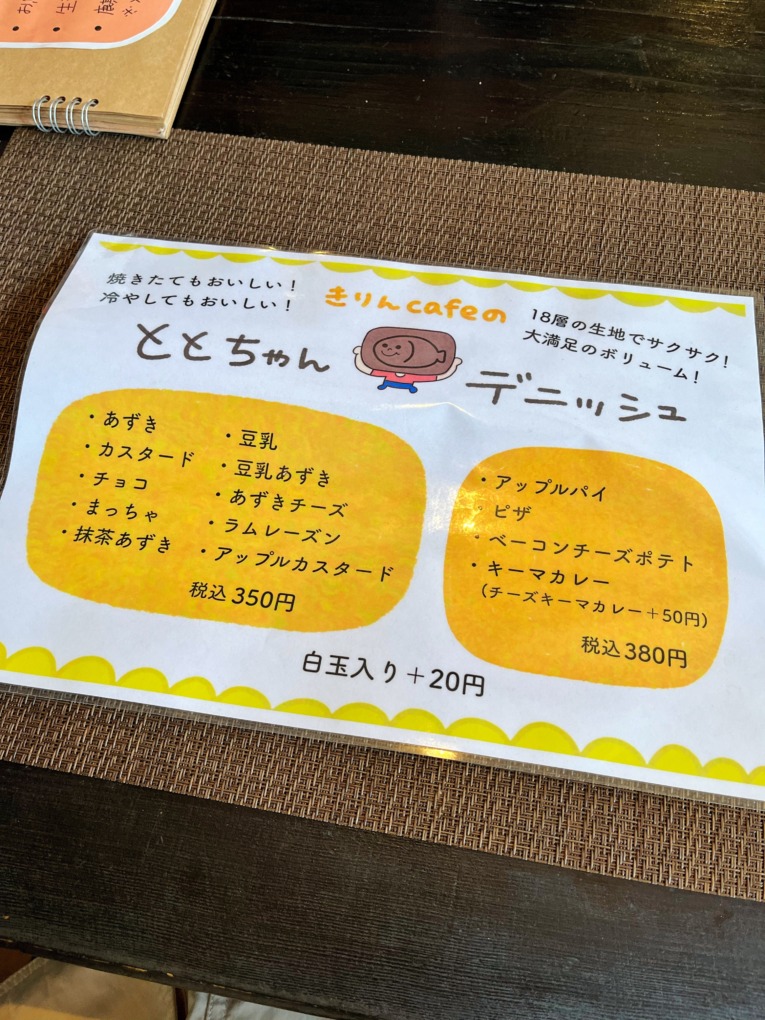 焼きたてもおいしい！
冷やしてもおいしい！
きりんcafeの
18層の生地でサクサク！
大満足のボリューム！
ととちゃん
デニッシュ
・あずき
・カスタード
・チョコ
・まっちゃ
・抹茶あずき
・豆乳
・豆乳あずき
・あずきチーズ
・ラムレーズン
・アップルカスタード
税込350円
・アップルパイ
・ピザ
・ベーコンチーズポテト
・キーマカレー
（チーズキーマカレー＋50円）
税込380円
白玉入り＋20円